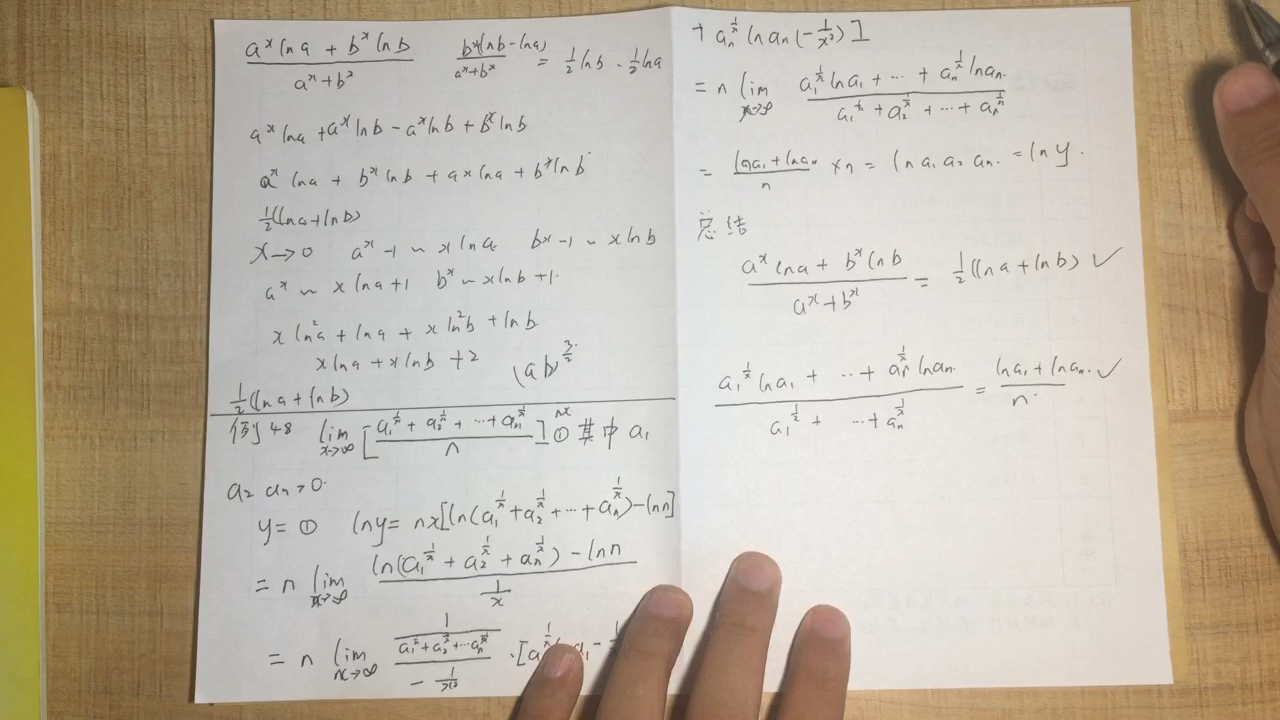 a^x lna + b^x lnb / a^x + b^x   b^x(lnb - lna) / a^x + b^x = 1/2 lnb - 1/2 lna
a^x lna + a^x lnb - a^x lnb + b^x lnb
a^x lna + b^x lnb + a^x lna + b^x lnb
1/2 (lna + lnb)
x→0 a^x - 1 ~ x lna b^x - 1 ~ x lnb
a^x ~ x lna + 1 b^x ~ x lnb + 1
x ln²a + lna + x ln²b + lnb / x lna + x lnb + 2
(ab)^{3/2}
1/2 (lna + lnb)
例48 lim x→∞ [a₁^{1/x} + a₂^{1/x} + ··· + aₙ^{1/x} / n]^{nx} ① 其中 a₁
a₂ aₙ > 0
y = ① lny = nx[ln(a₁^{1/x} + a₂^{1/x} + ··· + aₙ^{1/x}) - lnn]
= n lim x→∞ ln(a₁^{1/x} + a₂^{1/x} + aₙ^{1/x}) - lnn / 1/x
= n lim x→∞ 1 / a₁^{1/x} + a₂^{1/x} + ··· aₙ^{1/x} / - 1/x² · [a
+ aₙ^{1/x} lnaₙ (-1/x²)]
= n lim x→∞ a₁^{1/x} lna₁ + ··· + aₙ^{1/x} lnaₙ / a₁^{1/x} + a₂^{1/x} + ··· + aₙ^{1/x}
= lna₁ + lnaₙ / n × n = ln a₁ a₂ aₙ = lny
总结
a^x lna + b^x lnb / a^x + b^x = 1/2 (lna + lnb) ✓
a₁^{1/x} lna₁ + ··· + aₙ^{1/x} lnaₙ / a₁^{1/x} + ··· + aₙ^{1/x} = lna₁ + lnaₙ / n ✓